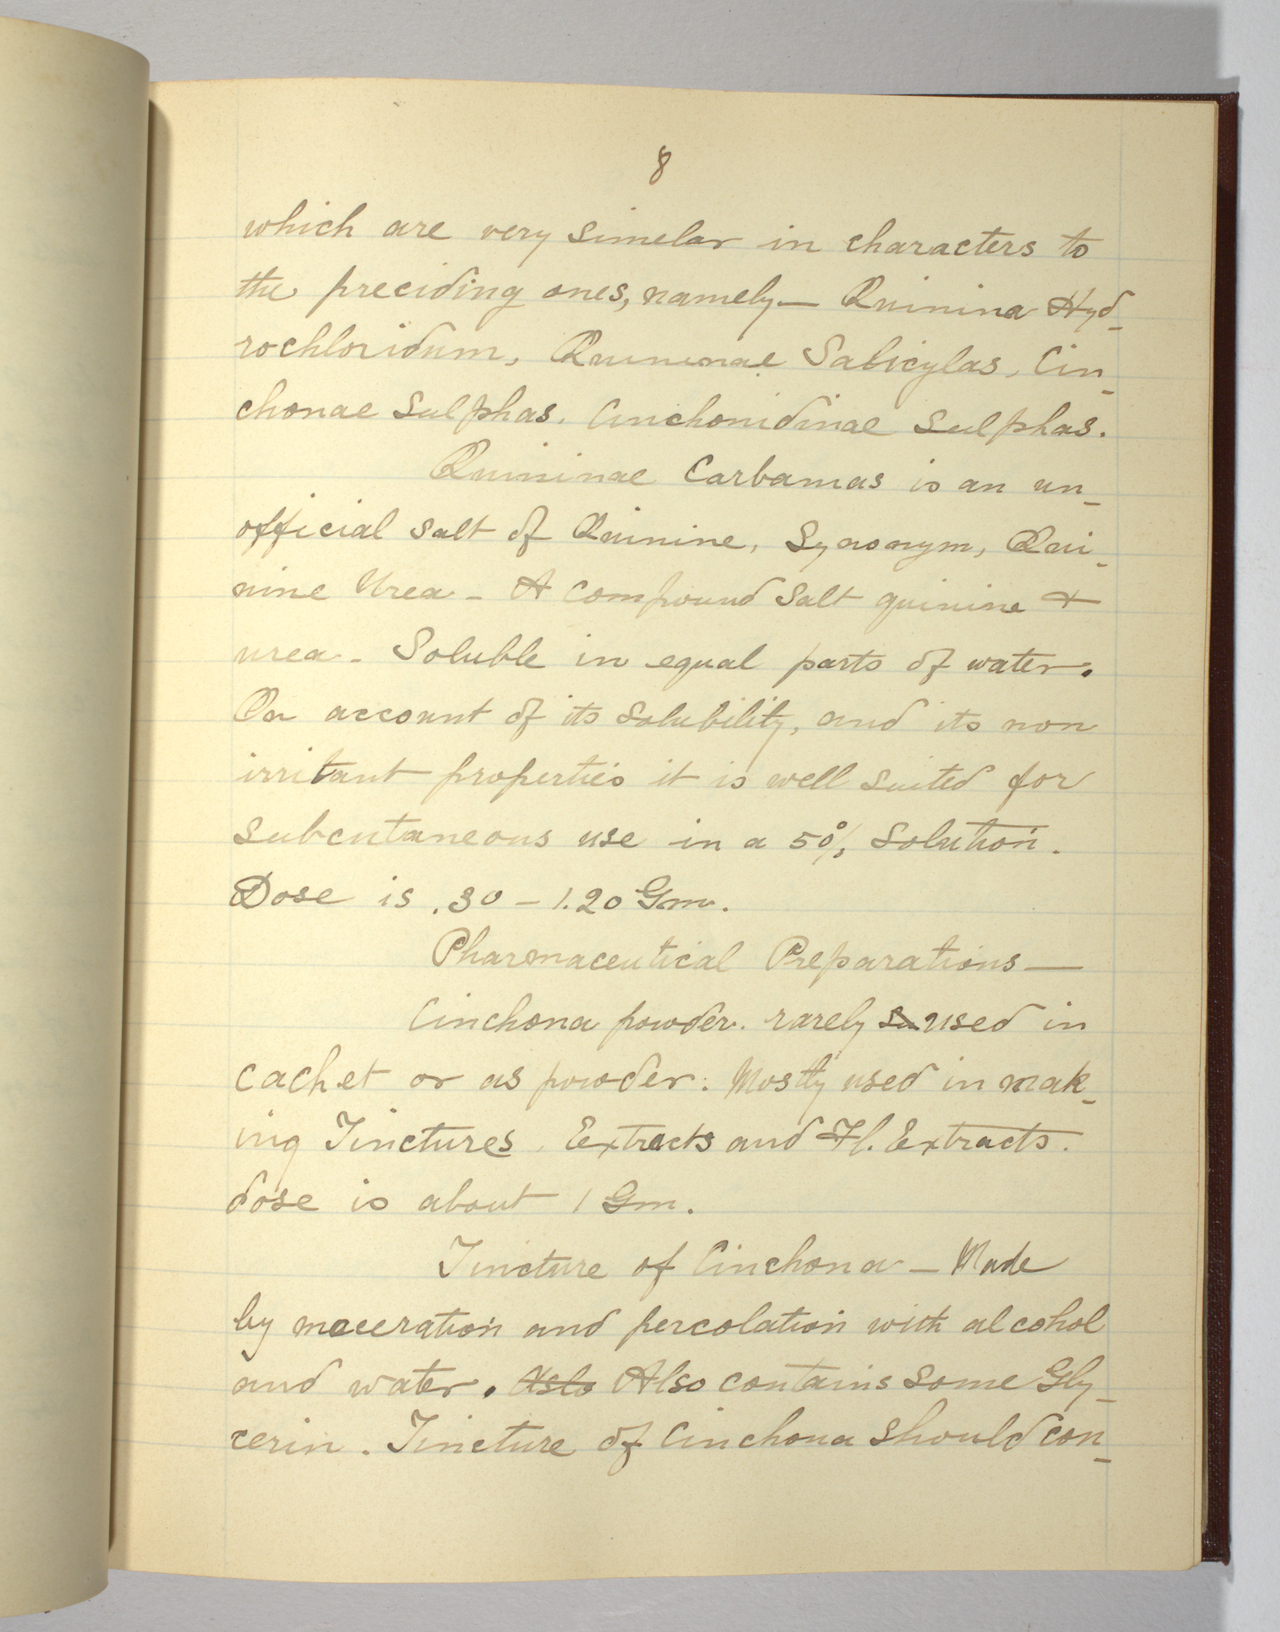 8
which are very simelar in characters to
the preciding ones, namely— Quinina Hyd-
rochloridum, Quininae Salicylas, Cin-
chonae Sulphas. Cinchonidinae Sulphas.
Quininae Carbamas is an un-
official salt of Quinine, Synonym, Qui-
nine Urea - A compound salt quinine +
urea - Soluble in equal parts of water.
On account of its solubility, and its non
irritant properties it is well suited for
subcutaneous use in a 50% solution.
Dose is .30 - 1.20 Gm.
Pharmaceutical Preparations—
Cinchona powder. rarely su used in
cachet or as powder. Mostly used in mak-
ing Tinctures, Extracts and Fl. Extracts.
dose is about 1 Gm.
Tincture of Cinchona - Made
by maceration and percolation with alcohol
and water. Aslo Also contains some Gly-
cerin. Tincture of Cinchona should con-